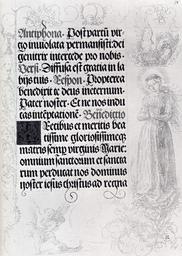 Antiphona. Post partū vir
go inviolata permansisti: dei
genitrix intercede pro nobis.
Versi. Diffusa est gratia in la
biis tuis. Respon. Propterea
benedixit te deus in eternum.
Pater noster. Et ne nos indu
cas in temptatione. Benedictio
Precibus et meritis bea
tissime gloriosissimeq;
matris semp virginis Marie:
omnium sanctorum et sancta
rum perducat nos dominus
noster iesus christus ad regna